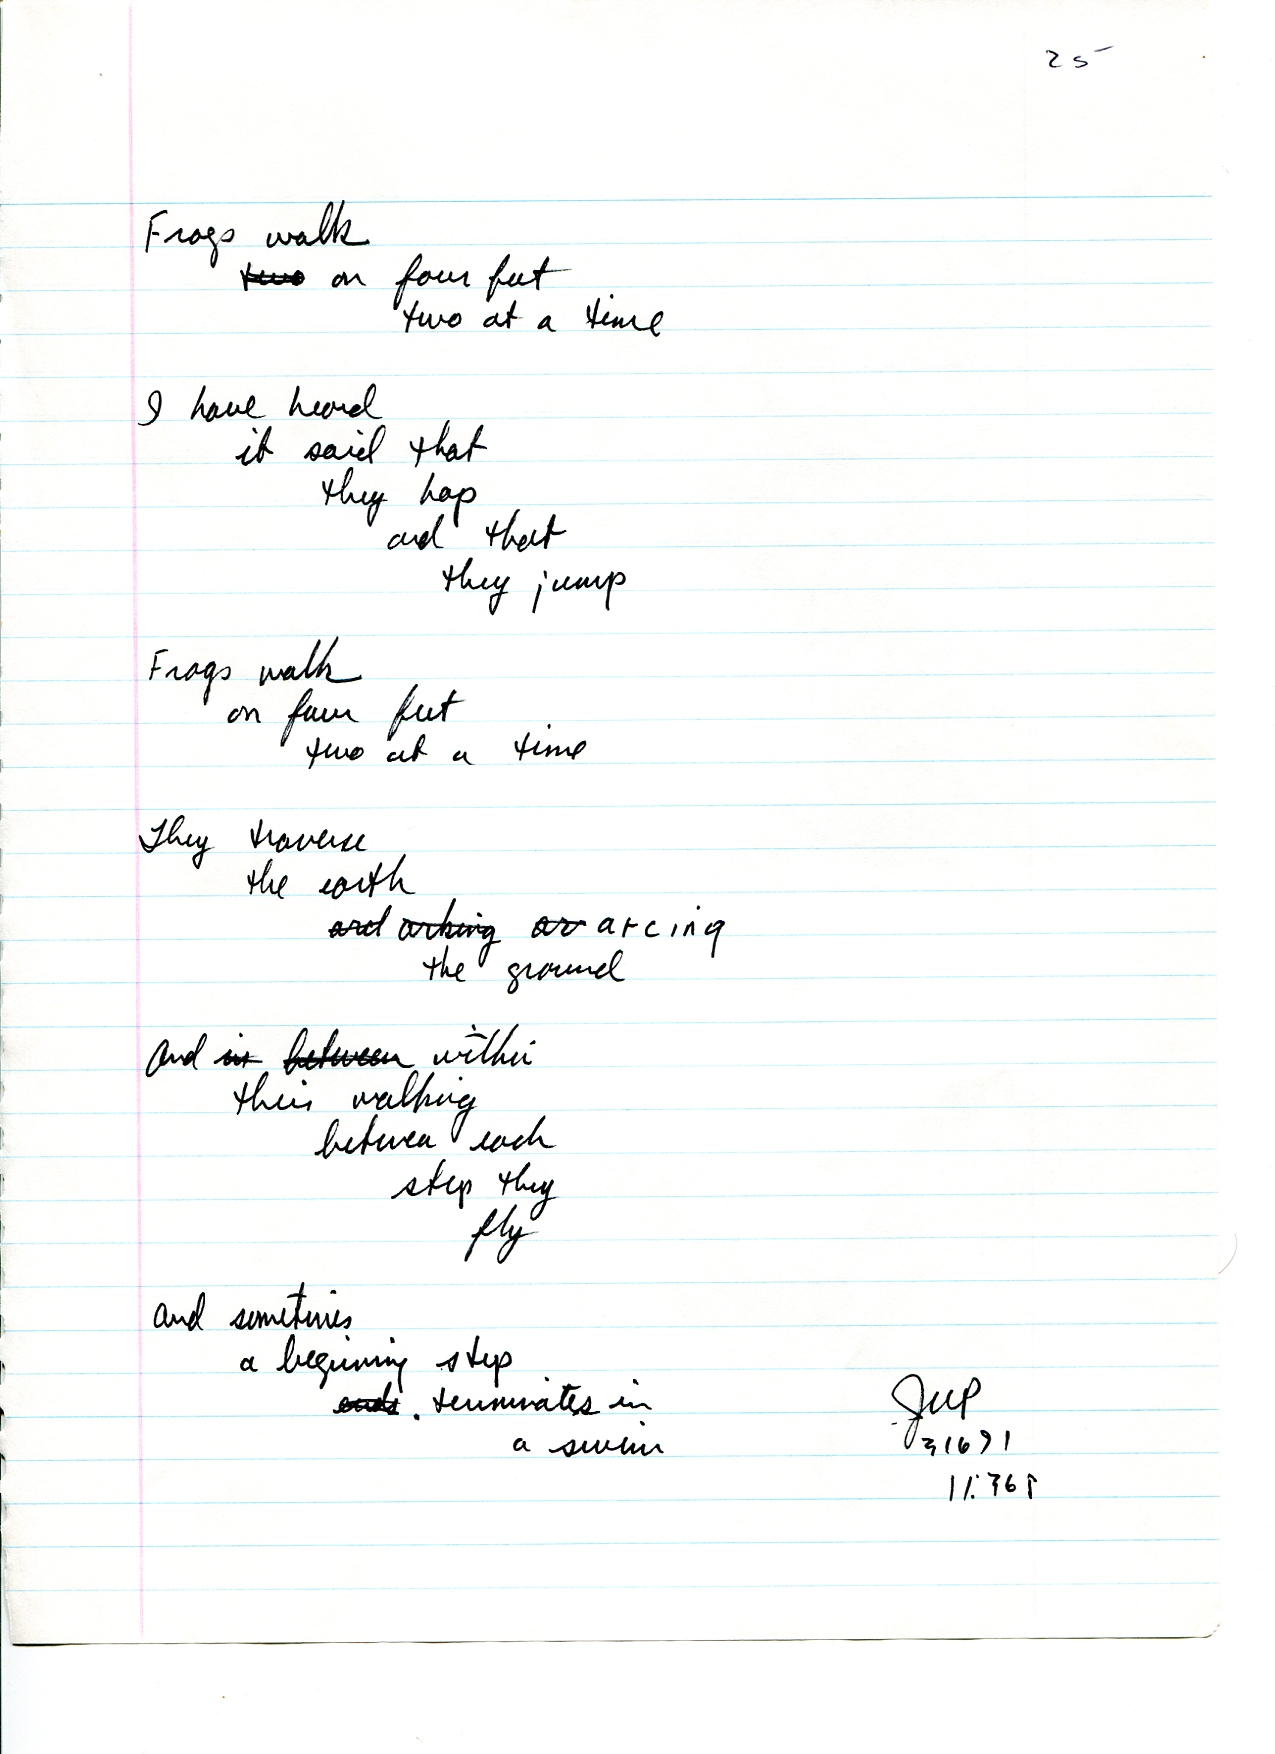 25
Frogs walk
two on four feet
two at a time
I have heard
it said that
they hop
and that
they jump
Frogs walk
on four feet
two at a time
They traverse
the earth
and arking ar arcing
the ground
And in between within
their walking
between each
step they
fly
And sometimes
a beginning step
ends. terminates in
a swim
JWP
31691
11:36P